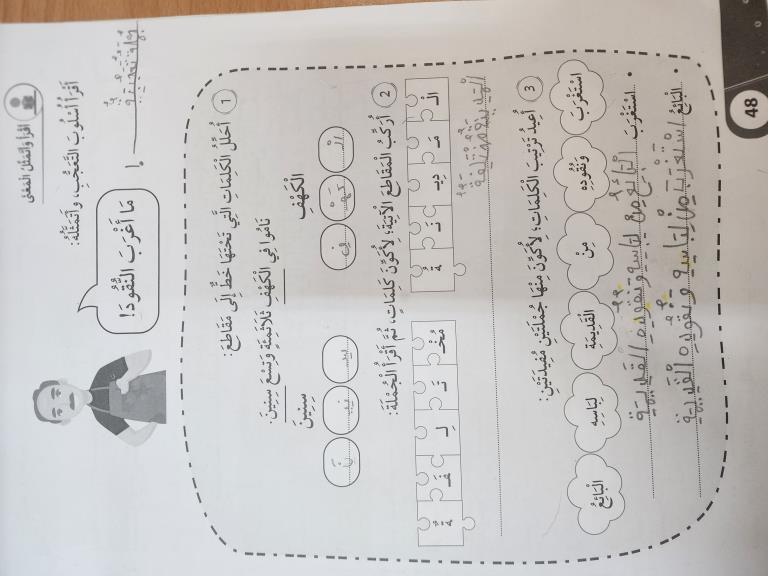 أَقْرَأُ وَأَتَمَثَّلُ الْمَعْنَى
أَقْرَأُ أُسْلُوبَ التَّعَجُّبِ، وَأَتَمَثَّلُهُ:
مَا أَغْرَبَ النُّقُودَ!
!
1 أُحَلِّلُ الْكَلِمَاتِ الَّتِي تَحْتَهَا خَطٌّ إِلَى مَقَاطِعَ:
نَامُوا فِي الْكَهْفِ ثَلَاثَمِئَةٍ وَتِسْعَ سِنِينَ.
الْكَهْفِ سِنِينَ
الْ كَهْ فِ سِ نِيـ نَ
2 أُرَكِّبُ الْمَقَاطِعَ الْآتِيَةَ؛ لِأُكَوِّنَ كَلِمَاتٍ، ثُمَّ أَقْرَأُ الْجُمْلَةَ:
الْـ مَـ دِيـ نَـ ةُ مُخْـ تَـ لِـ فَـ ةٌ
3 أُعِيدُ تَرْتِيبَ الْكَلِمَاتِ؛ لِأُكَوِّنَ مِنْهَا جُمْلَتَيْنِ مُفِيدَتَيْنِ:
اسْتَغْرَبَ وَنُقُودِهِ مِنْ الْقَدِيمَةِ لِبَاسِهِ الْبَائِعُ
• اسْتَغْرَبَ البَائِعُ مِنْ لباسه ونقوده القديمة
• الْبَائِعُ استغرب من لباسه ونقوده القديمة
48